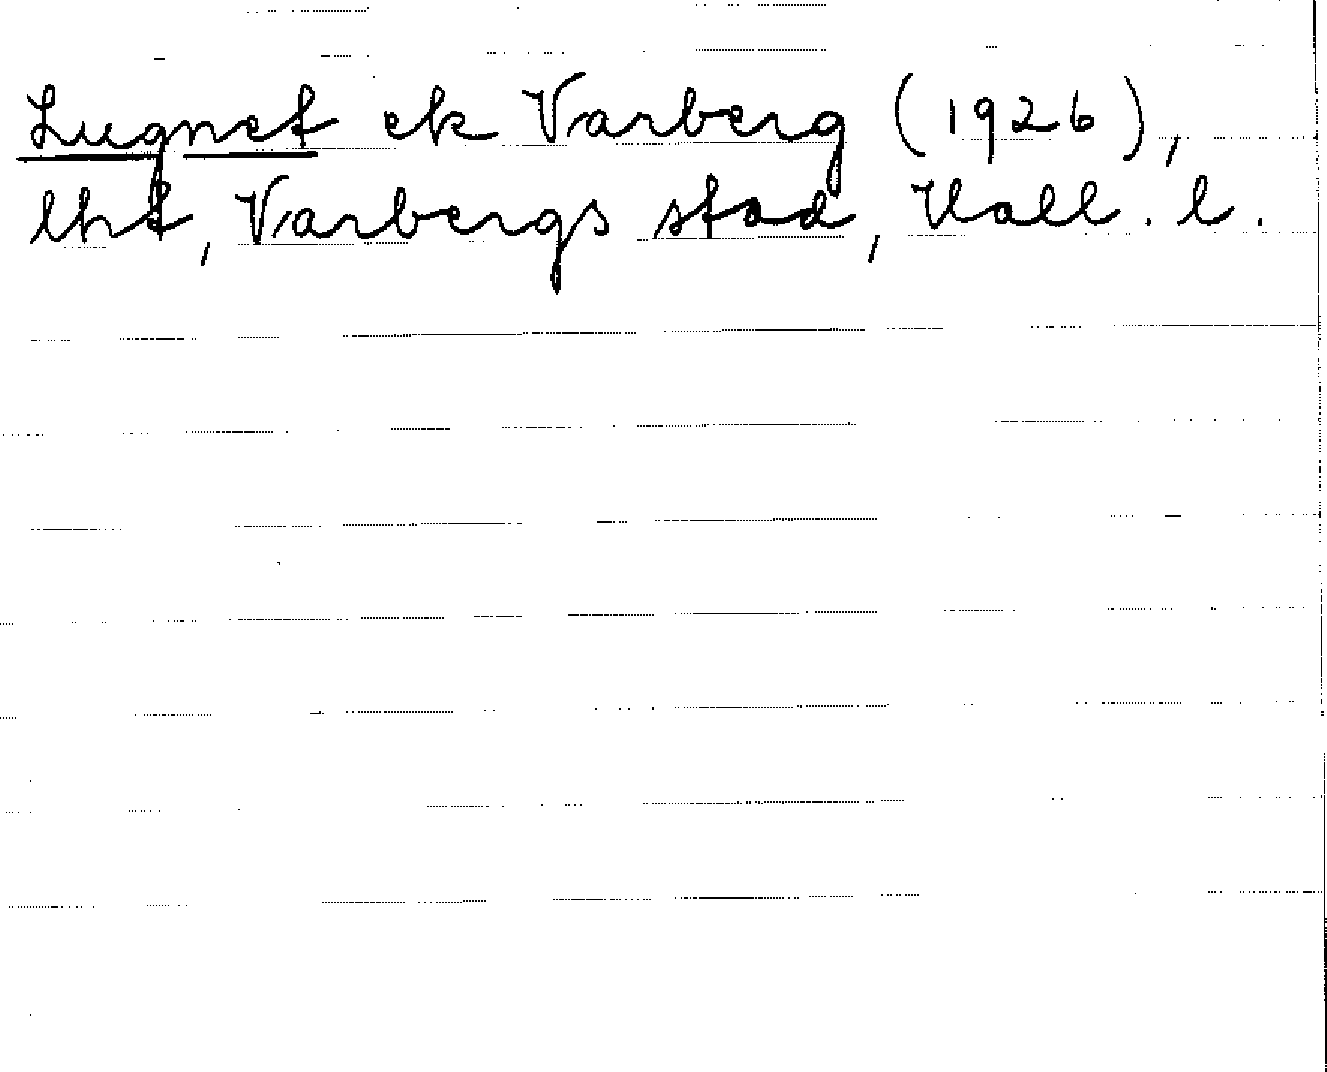 Lugnet ek Varberg (1926),
lht, Varbergs stad, Hall. l.